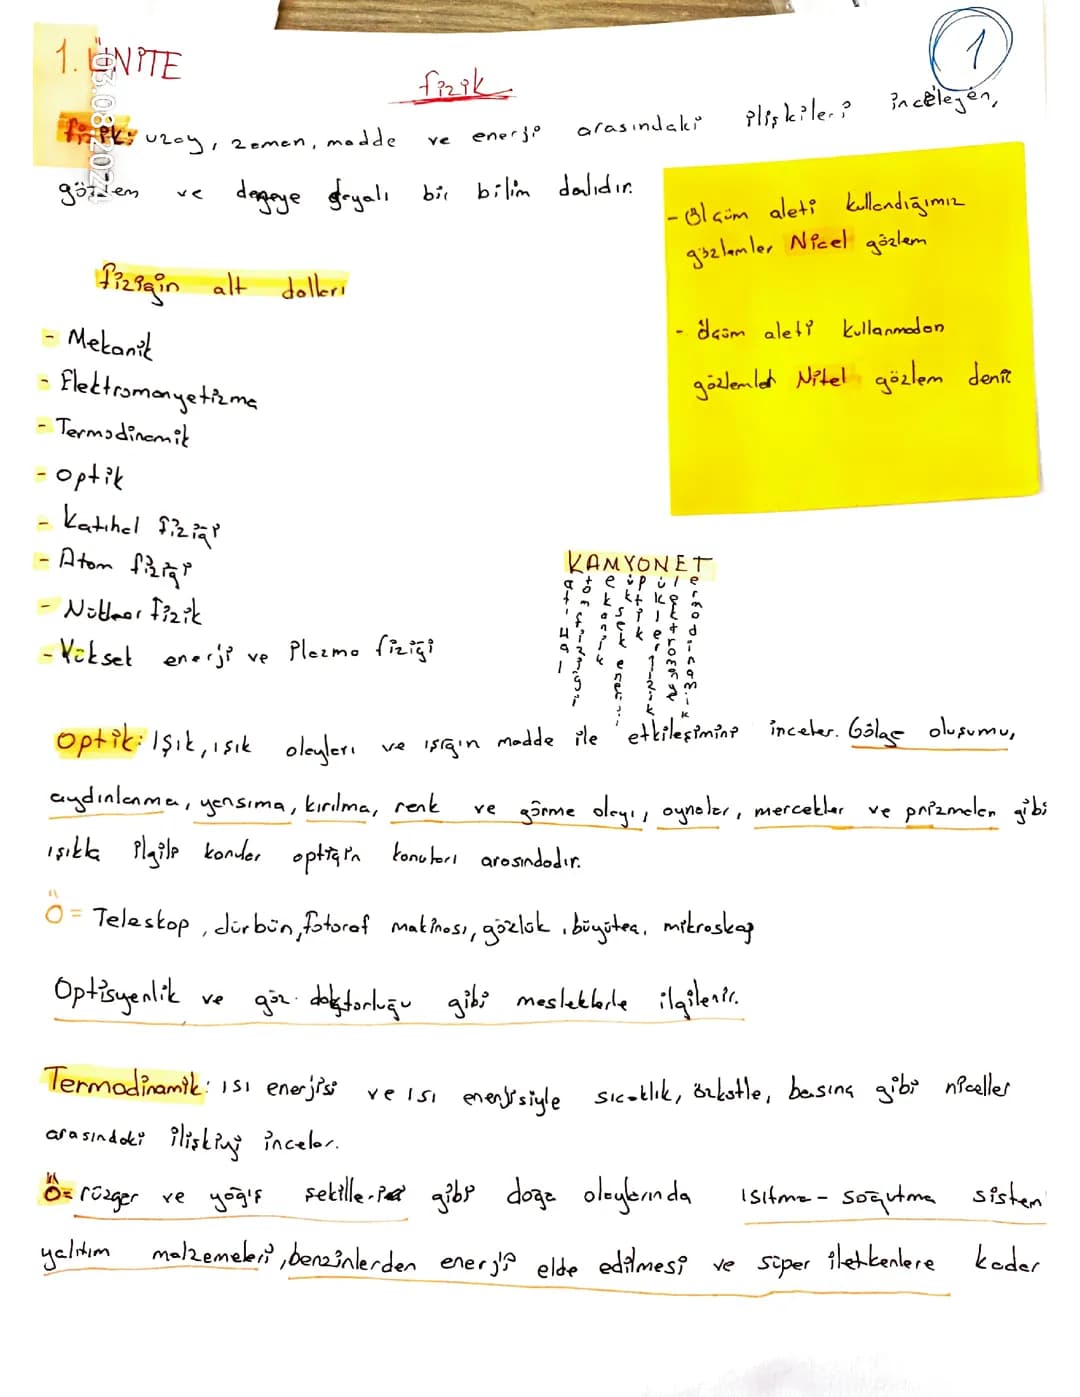 1. ÜNİTE
1
fizik
fizik: uzay, zaman, madde ve enerji arasındaki ilişkileri inceleyen,
gözlem ve deneye dayalı bir bilim dalıdır.
03.08.2021
- Ölçüm aleti kullandığımız
gözlemler Nicel gözlem
- ölçüm aleti kullanmadan
gözlemler Nitel gözlem denir
fiziğin alt dalları
- Mekanik
- Elektromanyetizma
- Termodinamik
- Optik
- Katıhal fiziği
- Atom fiziği
- Nükleer fizik
- Yüksek enerji ve Plazma fiziği
KAMYONET
Optik: Işık, ışık olayları ve ışığın madde ile etkileşimini inceler. Gölge oluşumu,
aydınlanma, yansıma, kırılma, renk ve görme olayı, aynalar, mercekler ve prizmalar gibi
ışıkla ilgili konular optiğin konuları arasındadır.
Ö = Teleskop, dürbün, fotoraf makinası, gözlük, büyüteç, mikroskop
Optisyenlik ve göz doktorluğu gibi mesleklerle ilgilenir.
Termodinamik: ısı enerjisi ve ısı enerjisiyle sıcaklık, özkütle, basınç gibi niceller
arasındaki ilişkiyi inceler.
Ö= rüzgar ve yağış şekilleri gibi doğa olaylarında ısıtma - soğutma sistem
yalıtım malzemeleri, benzinlerden enerji elde edilmesi ve süper iletkenlere kadar